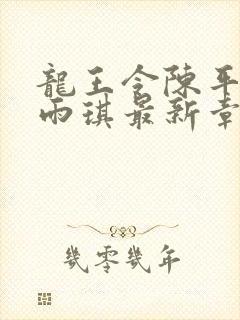 龍王令陳平
雨琪最新章
幾零幾年